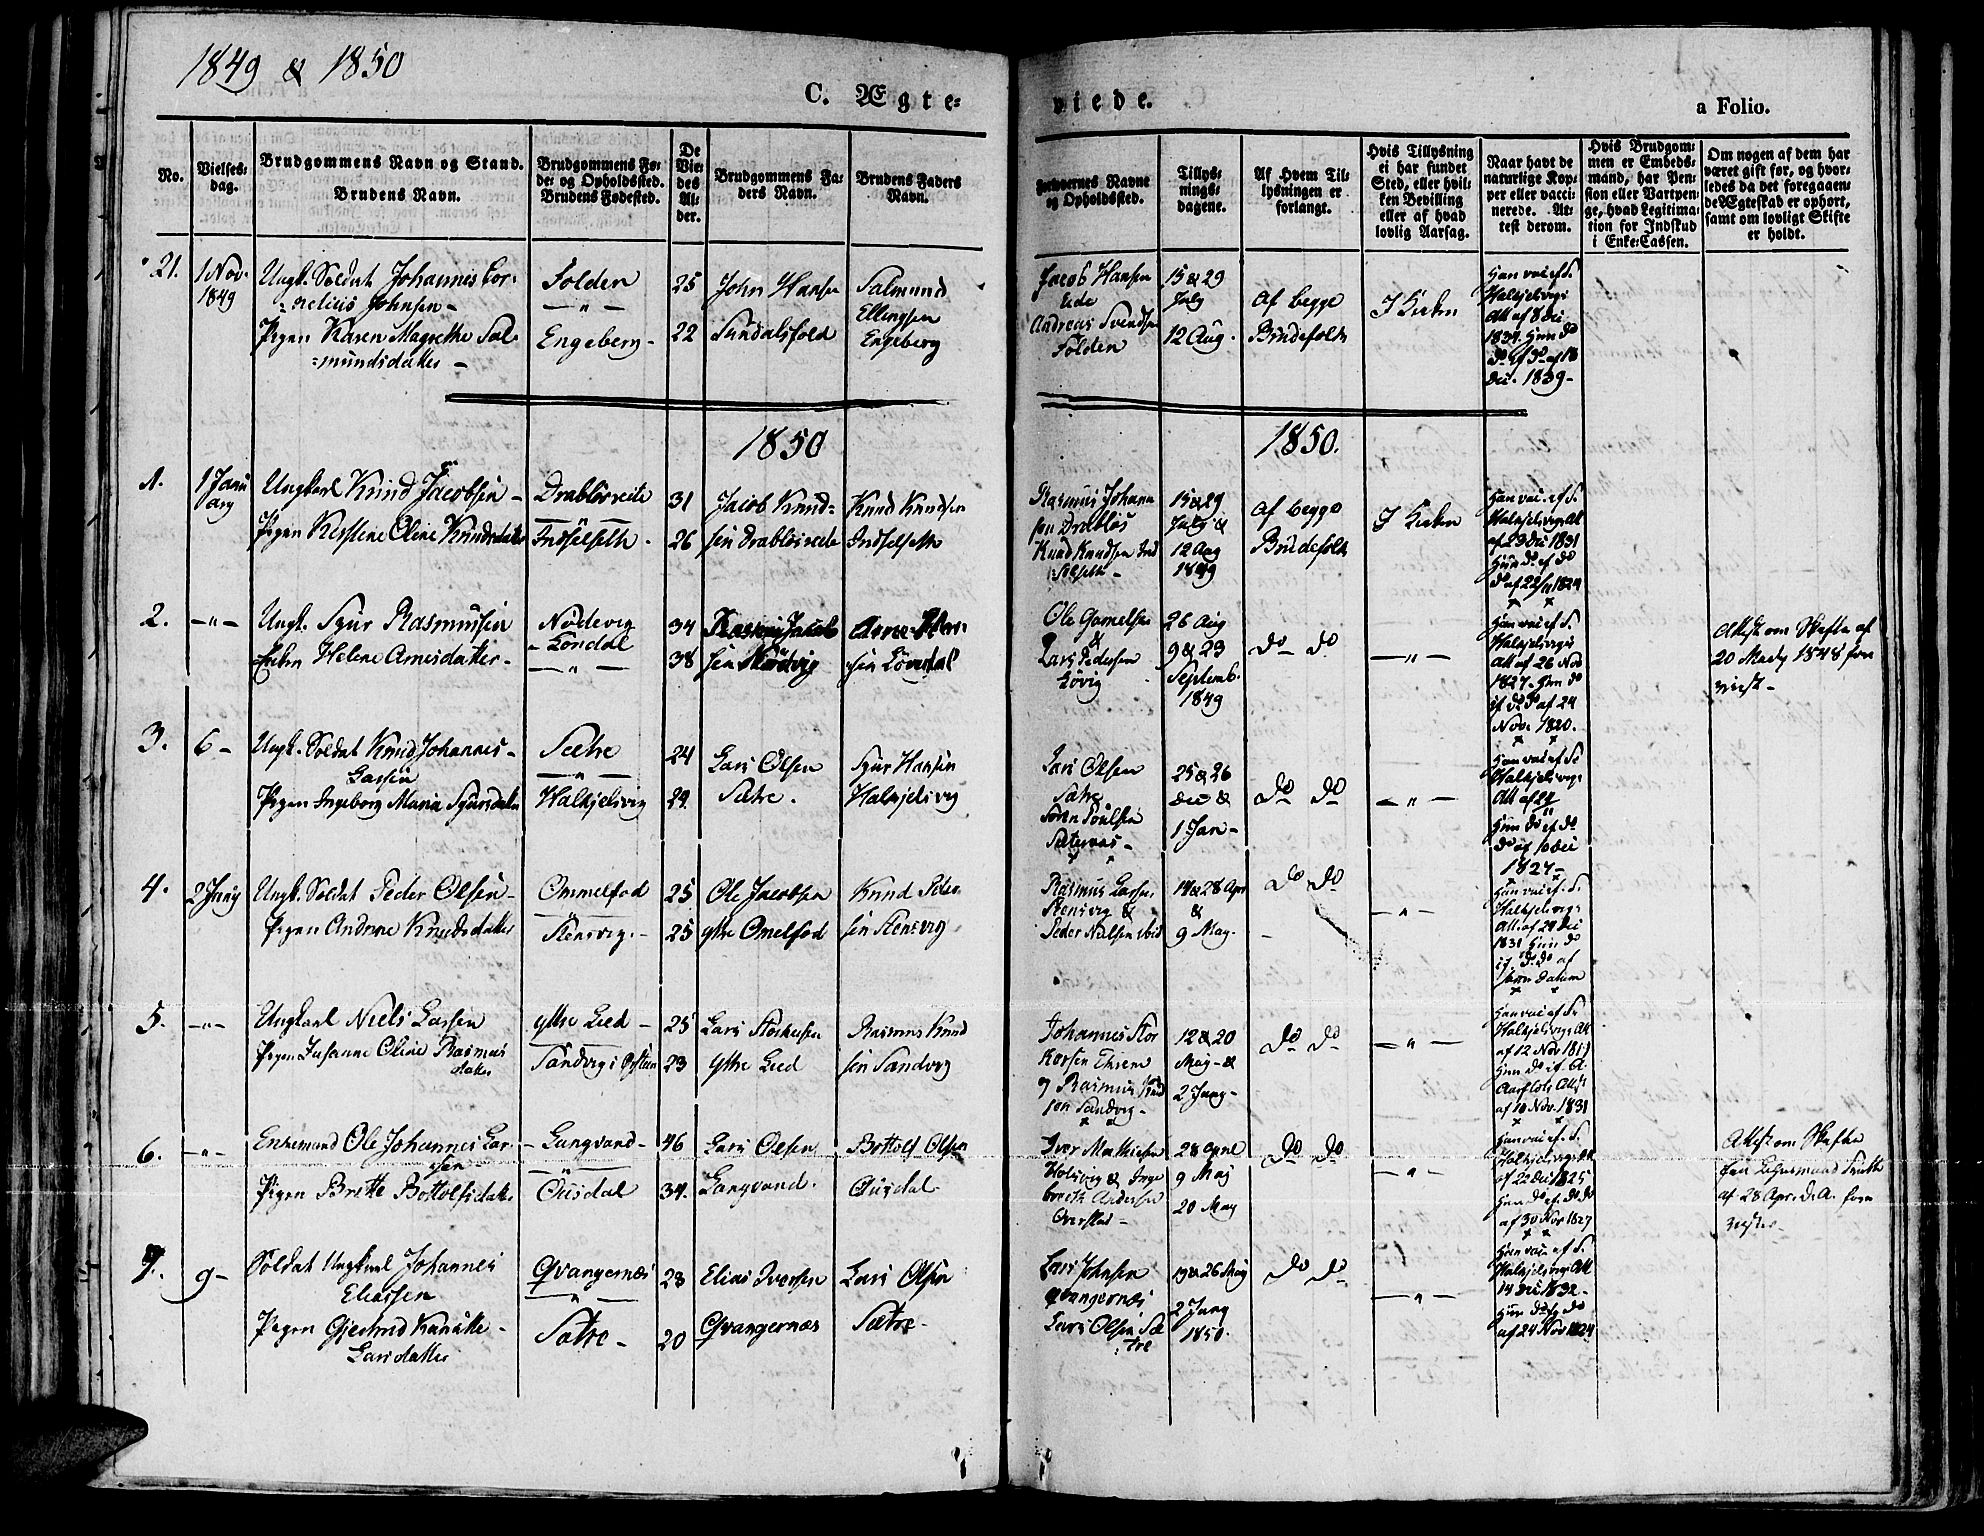 1849 & 1850
C. Ægte-
viede.
a Folio.
No.
Vielses-
dag.
Brudgommens Navn og Stand.
Brudens Navn.
Brudgommens Fø-
de- og Opholdssted.
Brudens Fødested.
De
Vie-
des
Al-
der.
Brudgommens Fa-
ders Navn.
Brudens Faders
Navn.
Forlovernes Navne
og Opholdssted.
Tillys-
nings-
dagene.
Af Hvem Til-
lysningen er
forlangt.
Hvis Tillysning
ei har fundet
Sted, eller hvil-
ken Bevilling
eller af hvad
lovlig Aarsag.
Naar havt de
naturlige Kop-
per eller vacci-
nerede. At-
test derom.
Hvis Brudgom-
men er Embeds-
mand, har Pen-
sion eller Vartpen-
ge, hvad Legitima-
tion for Indskud
i Enke-Cassen.
Om nogen af dem har
været gift før, og hvor-
ledes da det foregaaen-
de Ægteskab er ophørt,
samt om lovligt Skifte
er holdt.
21.
1 Nov.
1849
Ungk. Soldat Johannes Cor-
nelius Johnsen
Pigen Karen Magrethe Sal-
mundsdatter
Folden
— " —
Engeberg
25
22
John Hansen
Sundalsfold
Salmund
Ellingsen
Engeberg
Jacob Hansen
Andreas Svendsen
Folden
15 & 29
July
12 Aug.
Af begge
Brudefolk
I Kirken
Han vac. af S.
Halkjelsvigs
Att af 8 Dec
1834. Hun do
do af do af 18
Dec. 1839
1850
1850.
1.
1 Janu
ary
Ungkarl Knud Jacobsen
Pigen Kirstene Oline Knudsdatter
Drabløsveite
Indselseth
31
26
Jacob Knud-
sen Drabløsveite
Knud Knudsen
Indselseth
Rasmus Johann
sen Drabløs
Knud Knudsen Ind
selseth
15 & 29
July &
12 Aug
1849
Af begge
Brudefolk
I Kirken
Han vac. af S.
Halkjelsvigs Att
af 23 Dec 1831
Hun do af do
do af 22/11 1824
2.
— " —
Ungk. Sjur Rasmussen
Enken Helene Arnesdatter
Nødevig
Løndal
— " —
34
38
Rasmus Jacob
sen Nødvig
Arne Peter-
sen Løvndal
Ole Gamelsen
&
Lars Pedersen
Løvig
26 Aug
9 & 23
Septemb.
1849
do do
— " —
Han vac. af S.
Halkjelsvigs
Att af 26 Nov
1827. Hun do
af do do af 24
Nov. 1820.
Attest om Skifte af
20 Mady 1848 fore
viest
3.
6
Ungk. Soldat Knud Johannes
Larsen
Pigen Ingeborg Maria Sjursdatter
Sætre
— " —
Halkjelsvig
24
29.
Lars Olsen
Sætre.
Sjur Hansen
Halkjelsvig
Lars Olsen
Sætre
Søren Poulsen
Sæternæs
25 & 26
Dec &
1 Jan
do do
— " —
Han vac af S.
Halkjelsvigs
Att af 29
Hun do af do
do af 10 Dec
1827
4.
2 Juny
Ungk. Soldat Peder Olsen
Pigen Andrine Knudsdatter
Ommelfod
— " —
Stensvig.
25
25
Ole Jacobsen
ytre Omelfod
Knud Peder
sen Stensvig
Rasmus Larsen
Stensvig &
Peder Nilsen ibid
14 & 28 Apr
&
9 May.
do do
— " —
Han vac. af S.
Halkjelsvigs
Att. af 29 Dec
1831 Hun do
af do do af
samme Datum
5.
— " —
Ungkarl Niels Larsen
Pigen Susanne Oline Rasmus
datter
Ytre Lied
Sandvig i Ørsten
25
23
Lars Storkersen
Ytre Lied
Rasmus Knud
sen Sandvig
Johannes Stor
korsen
og Rasmus Knud
sen Sandvig
12 & 20
May &
2 Juny
do do
— " —
Han vac. af S.
Halkjelsvigs Att
af 12 Nov
Hun do af A.
Aarflots Attest
af 10 Nov. 1831
6.
— " —
Enkemand Ole Johannes Lar-
sen
Pigen Brette Bottolfsdatter
Langvand
— " —
Ousdal
46
34.
Lars Olsen
Langvand.
Bottolf Olsen
Ousdal
Iver Mathiesen
Holsvig & Inge
breth Andersen
Overstad
28 April
9 Maj
20 May
do do
— " —
Han vac. af S.
Halkjelsvigs Att
af 22 Dec 1825
Hun do af do do
af 30 Nov 1827
Attest om Skifte
fra Lehnsmand
af 28 Apr. d. A. fore
viist
7.
9
Soldat Ungkarl Johannes
Eliassen
Pigen Gjertrud Kanutte
Larsdatter
Qvangernæs
— " —
Sætre
28
20
Elias Iversen
Qvangernæs
Lars Olsen
Sætre
Lars Johnsen
Qvangernæs
Lars Olsen Sæ
tre
19 & 26 May
2 Juny
1850.
do do
— " —
Han vac. af S.
Halkjelsvigs Att
14 Dec 1832
Hun do af do
af 24 Nov 1824